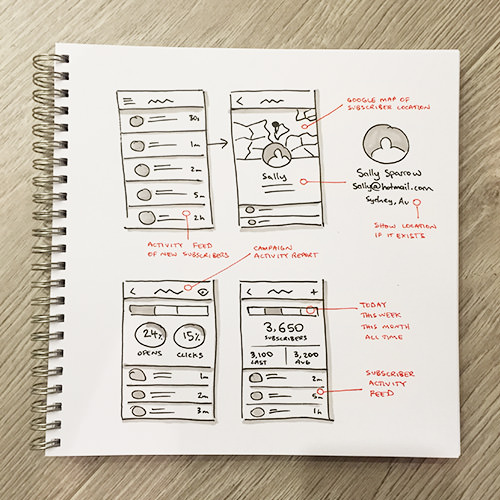 30s
1m
2m
5m
2h
Sally
GOOGLE MAP OF
SUBSCRIBER LOCATION
Sally Sparrow
sally@hotmail.com
Sydney, Au
SHOW LOCATION
IF IT EXISTS
ACTIVITY FEED
OF NEW SUBSCRIBERS
CAMPAIGN
ACTIVITY REPORT
24%
15%
OPENS
CLICKS
1m
2m
3m
3,650
SUBSCRIBERS
3,100
LAST
3,200
AVG
2m
5m
1h
TODAY
THIS WEEK
THIS MONTH
ALL TIME
SUBSCRIBER
ACTIVITY
FEED